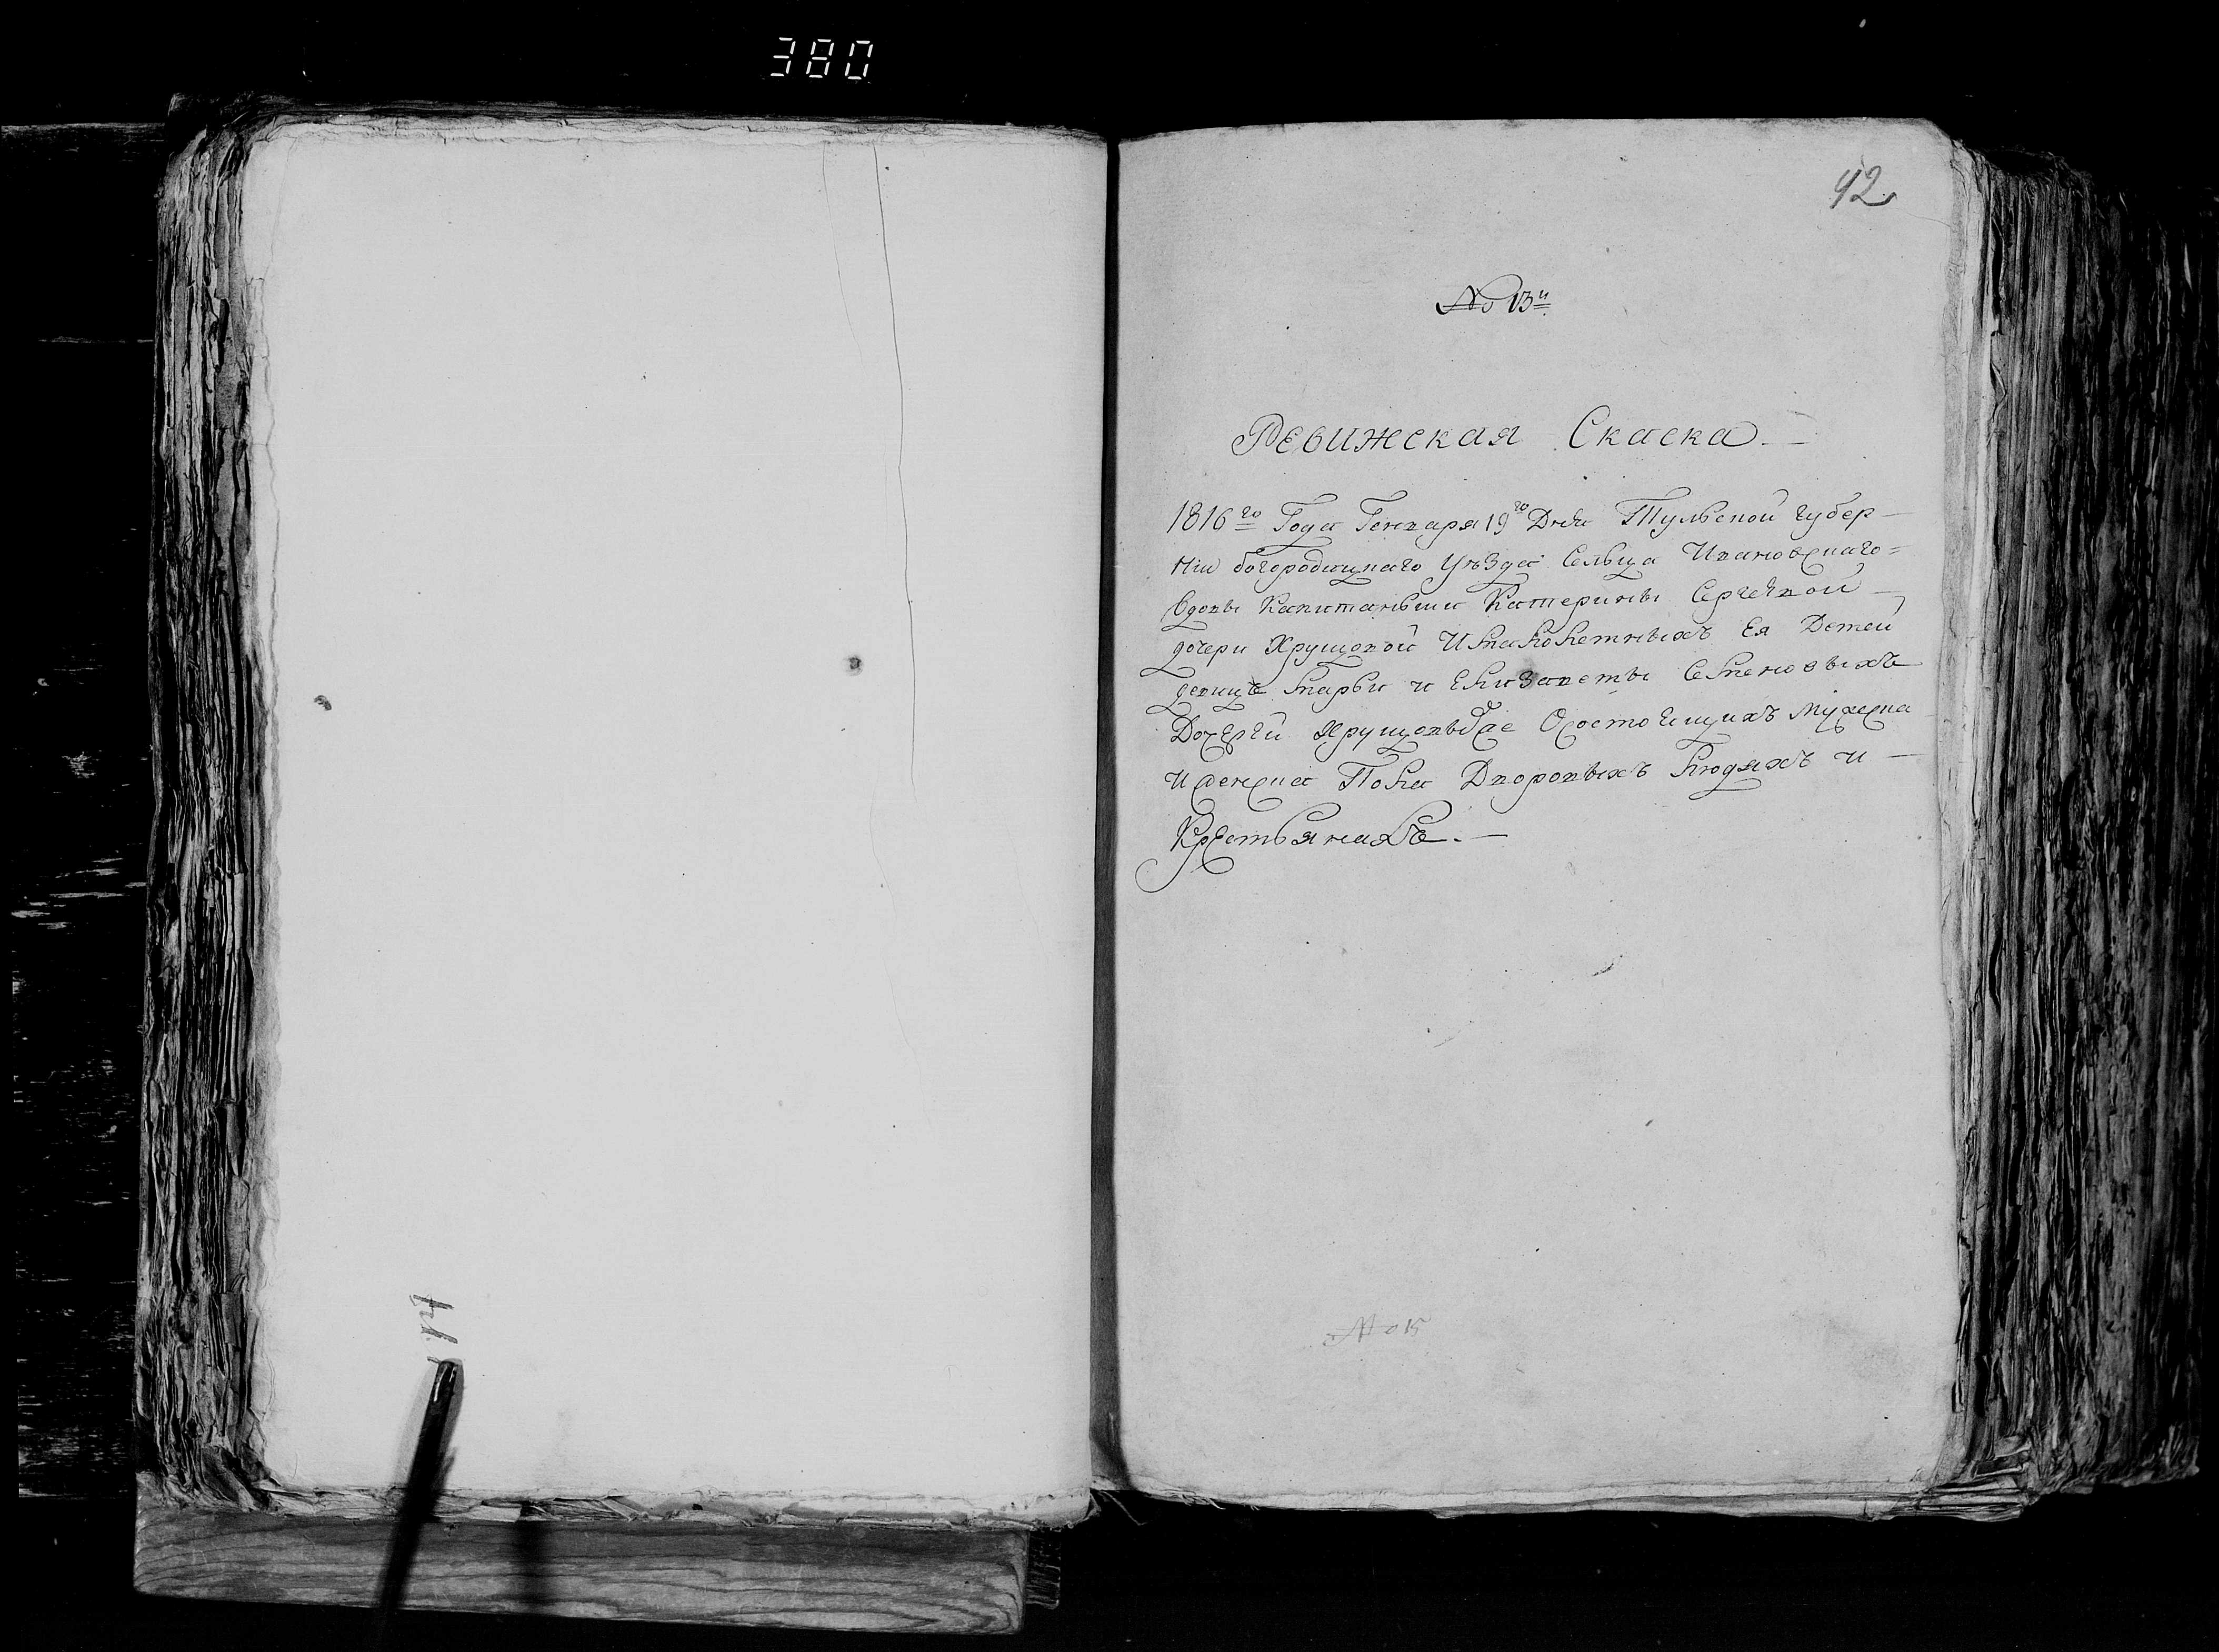 380
42
№ 13й
Ревижская Скаска
1816го Года Генваря 19го Дня Тульской губер-
нiи богородицкаго уѣзда Сельца Ивановскаго
Вдовы Капитанши Катерины Сергѣвой
дочери Хрущовой И малолетныхъ Ея Детей
девицъ Марьи и Елизаветы Семеновыхъ
Дочерей Хрущовых Осостоящихъ мужска
И женска Пола Дворовыхъ людяхъ и
Крестьянахъ.
№ 15